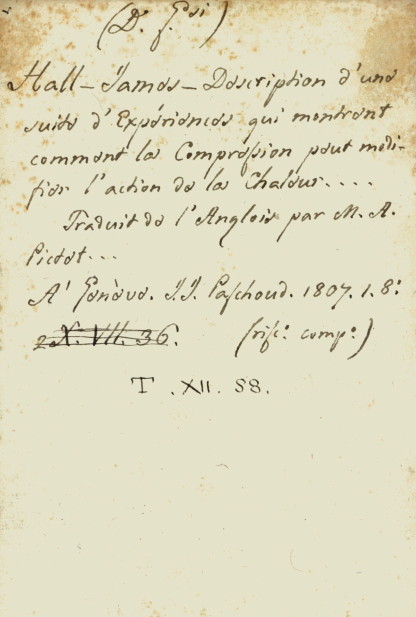 (D. f. Gsi)
Hall – James – Description d'une
suite d'Expériences qui montrent
comment la Compression peut modi-
fier l'action de la Chaleur....
Traduit de l'Anglois par M. A.
Pictet...
A' Genève. J.J. Paschoud. 1807. 1. 8:
2 X. VII. 36. (risc: comp:)
T. XII. 58.